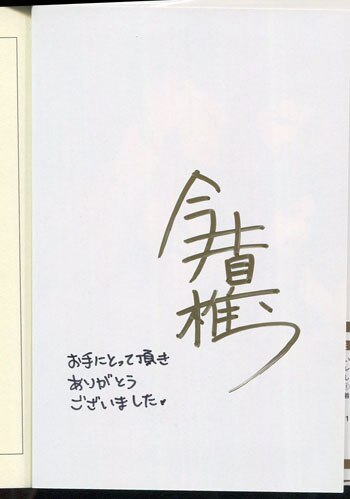 今井真椎
お手にとって頂き
ありがとう
ございました♥